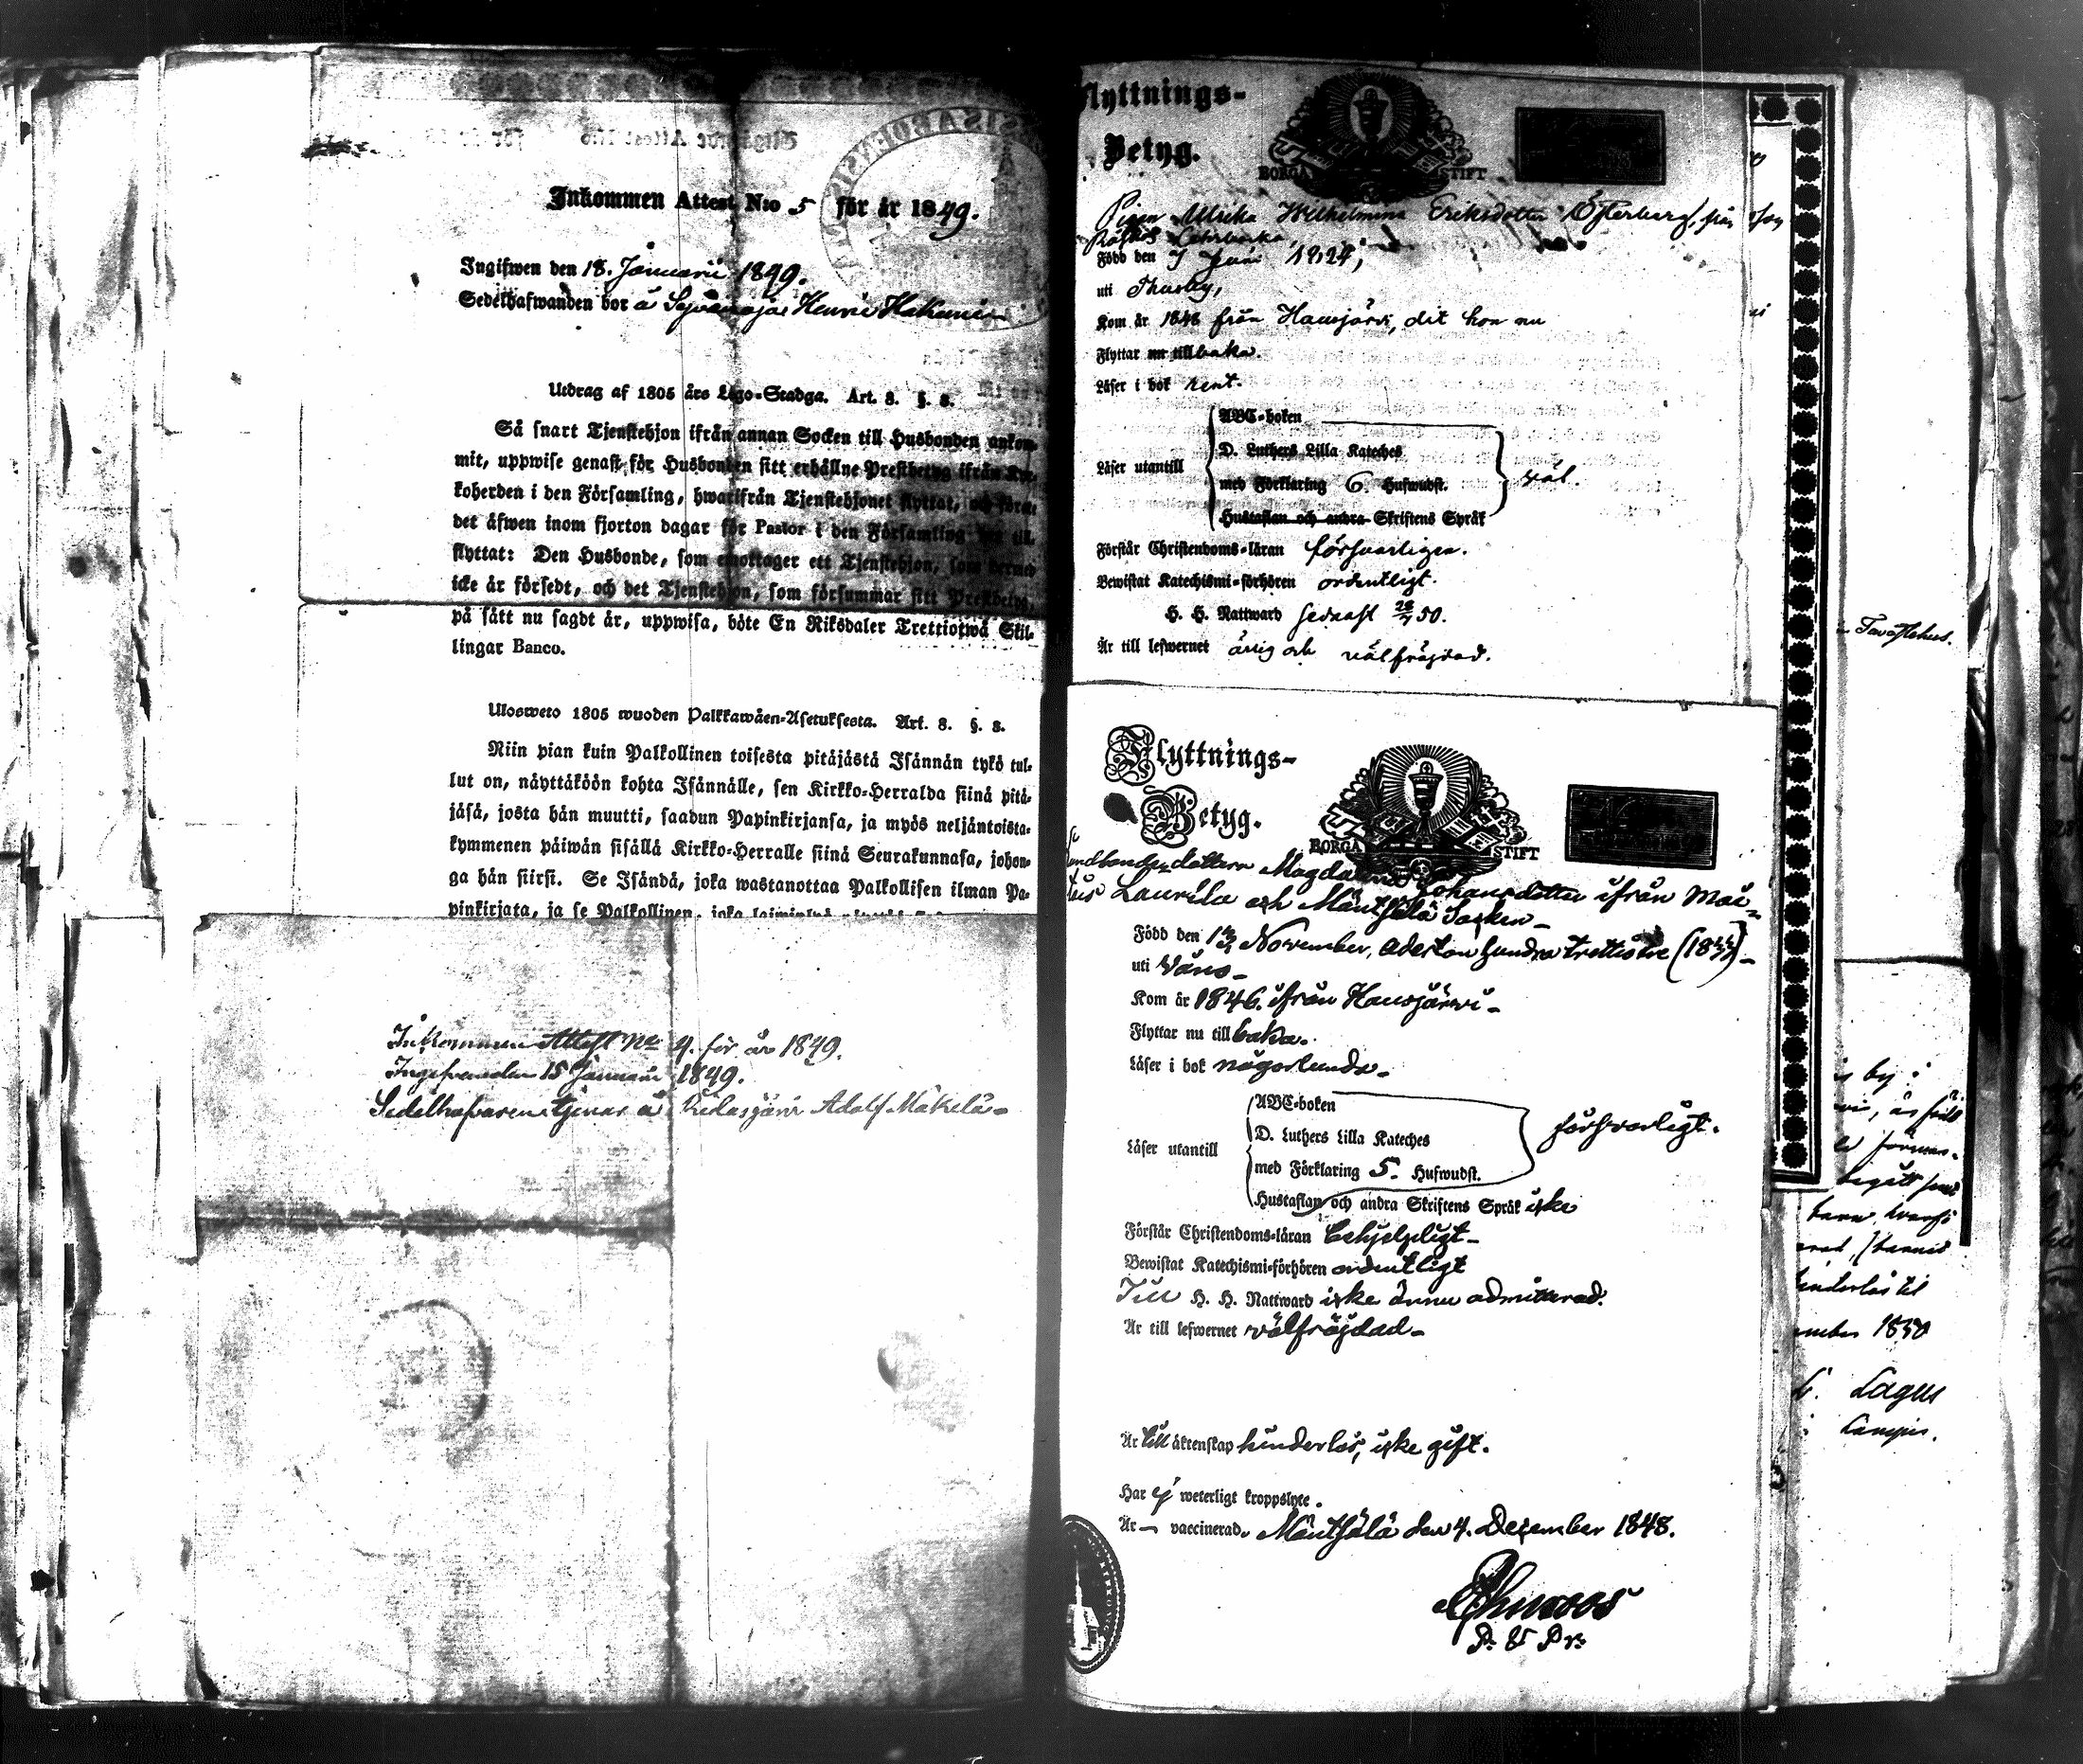 Inkommen Attest N:o 5 för år 1849.
Ingifwen den 18. Januarii 1849.
Sedelhafwanden bor å Henric
Utdrag af 1805 års Lego-Stadga. Art. 8. §. 8.
Så snart Tjenstehjon ifrån annan Socken till Husbonden ankom-
mit, uppwise genast för Husbonden sitt erhållne Prestbetyg ifrån Kyr-
koherden i den Församling, hwarifrån Tjenstehjonet flyttat, och förete
det äfwen inom fjorton dagar för Pastor i den Församling till
flyttat: Den Husbonde, som emottager ett Tjenstehjon, som dermed
icke är försedt, och det Tjenstehjon, som försummar sitt Prestbetyg,
på sätt nu sagdt är, uppwisa, böte En Riksdaler Trettiotwå Skil-
lingar Banco.
Ulosweto 1805 wuoden Palkkawäen-Asetuksesta. Art. 8. §. 8.
Niin pian kuin Palkollinen toisesta pitäjästä Isännän tykö tul-
lut on, näyttäköön kohta Isännälle, sen Kirkko-Herralda siinä pitä-
jäsä, josta hän muutti, saadun Papinkirjansa, ja myös neljäntoista-
kymmenen päiwän sisällä Kirkko-Herralle siinä Seurakunnasa, johon-
ga hän siirsi. Se Isändä, joka wastanottaa Palkollisen ilman Pa-
pinkirjata, ja se Palkollinen, joka
Inkommen Attest No 4. för år 1849.
Ingifven den 15 Januari 1849.
Sedelhafvaren tjenar å Ridasjärvi Adolf Mäkelä
Flyttnings-
Betyg.
BORGÅ STIFT
Pigan Ulrika Wilhelmina Eriksdotter Österberg, från
Född den 7 Juni 1824,
uti Thusby,
Kom år 1848 från Hausjärvi, dit hon nu
Flyttar nu tillbaka.
Läser i bok rent.
Läser utantill
ABC-boken
D. Luthers Lilla Kateches
med Förklaring 6. Hufwudst.
Hustaflan och andra Skriftens Språk
väl.
Förstår Christendoms-läran försvarligen.
Bewistat Katechismi-förhören ordentligt.
H. H. Nattward sednast 50.
Är till lefwernet ärlig och välfrägdad.
Flyttnings-
Betyg.
BORGÅ STIFT
Magdalena Johansdotter ifrån
Laurila och Mäntsälä Socken
Född den November, adertonhundratrettiotre (1833)
uti Vånå
Kom år 1846. ifrån Hausjärvi
Flyttar nu tillbaka.
Läser i bok någorlunda
Läser utantill
ABC-boken
D. Luthers Lilla Kateches
med Förklaring 5. Hufwudst.
Hustaflan och andra Skriftens Språk icke
försvarligt.
Förstår Christendoms-läran behjelpligt
Bewistat Katechismi-förhören ordentligt
Till H. H. Nattward icke ännu admitterad.
Är till lefwernet välfrägdad
Är till äktenskap hinderlös, icke gift.
Har ej weterligt kroppslyte.
Är vaccinerad. Mäntsälä den 4. December 1848.
Tavastehus.
by i
hinderlös til
1850
Lagus